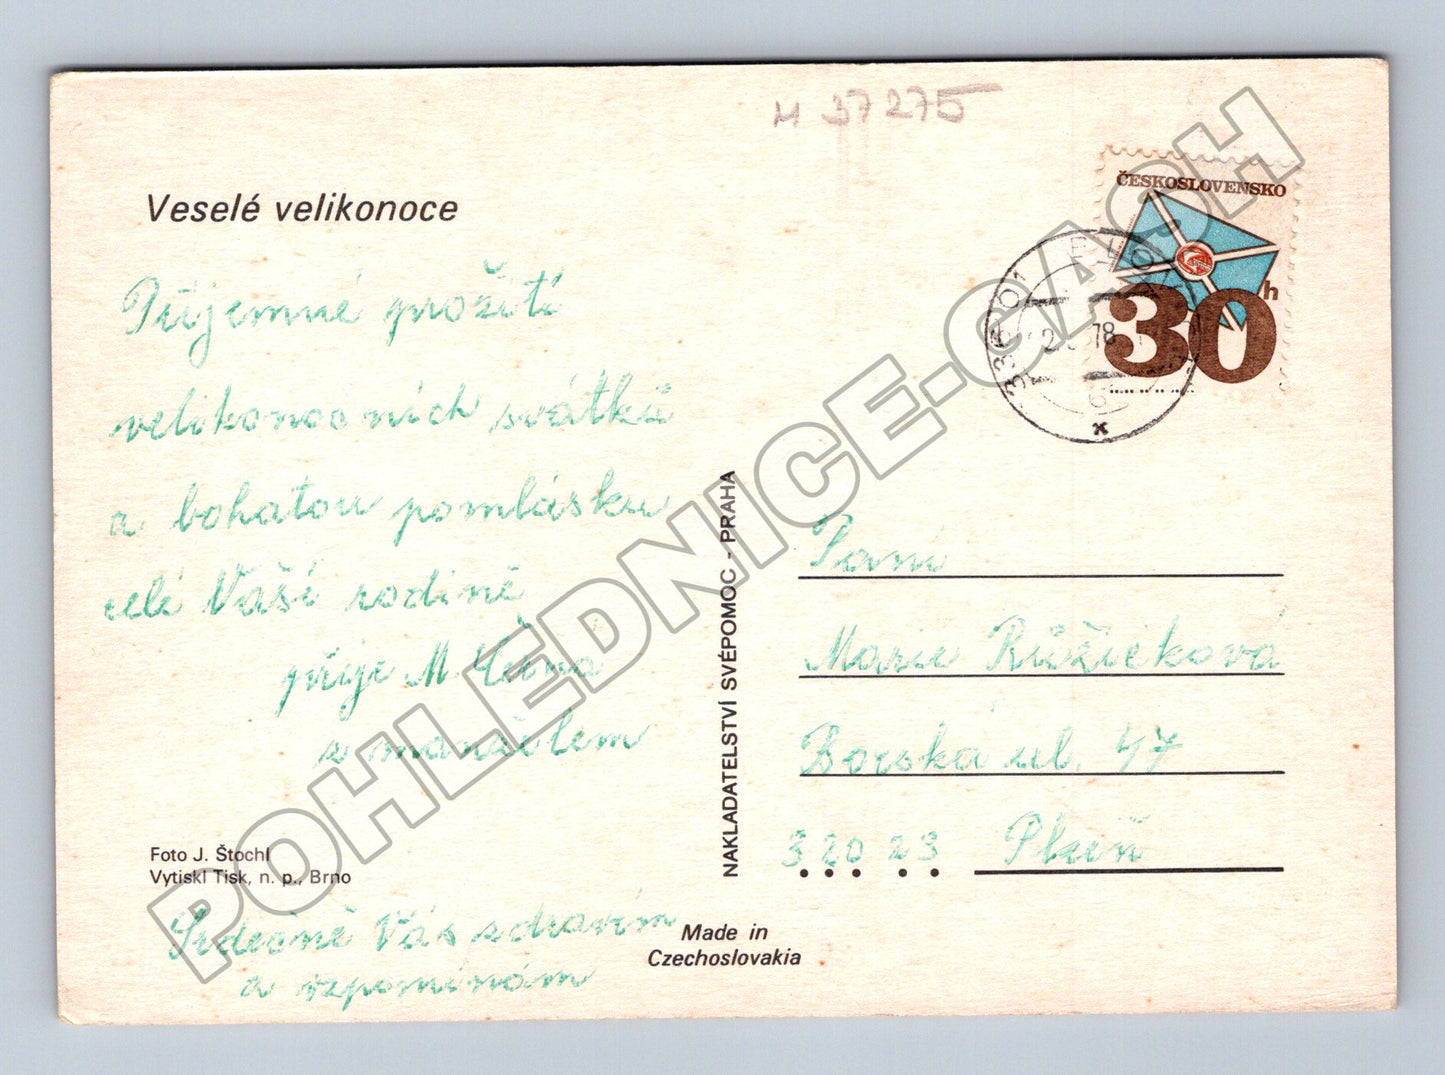 H 37275
ČESKOSLOVENSKO
30h
78
Veselé velikonoce
Příjemné prožití
velikonočních svátků
a bohatou pomlásku
celé Vaší rodině
přeje M.
s manželem
Foto J. Štochl
Vytiskl Tisk, n. p., Brno
Srdečně Vás zdravím
a vzpomínám
NAKLADATELSTVÍ SVÉPOMOC - PRAHA
Made in
Czechoslovakia
Paní
Marie Růžičková
Borská ul. 47
320 23 Plzeň
POHLEDNICE-CASH